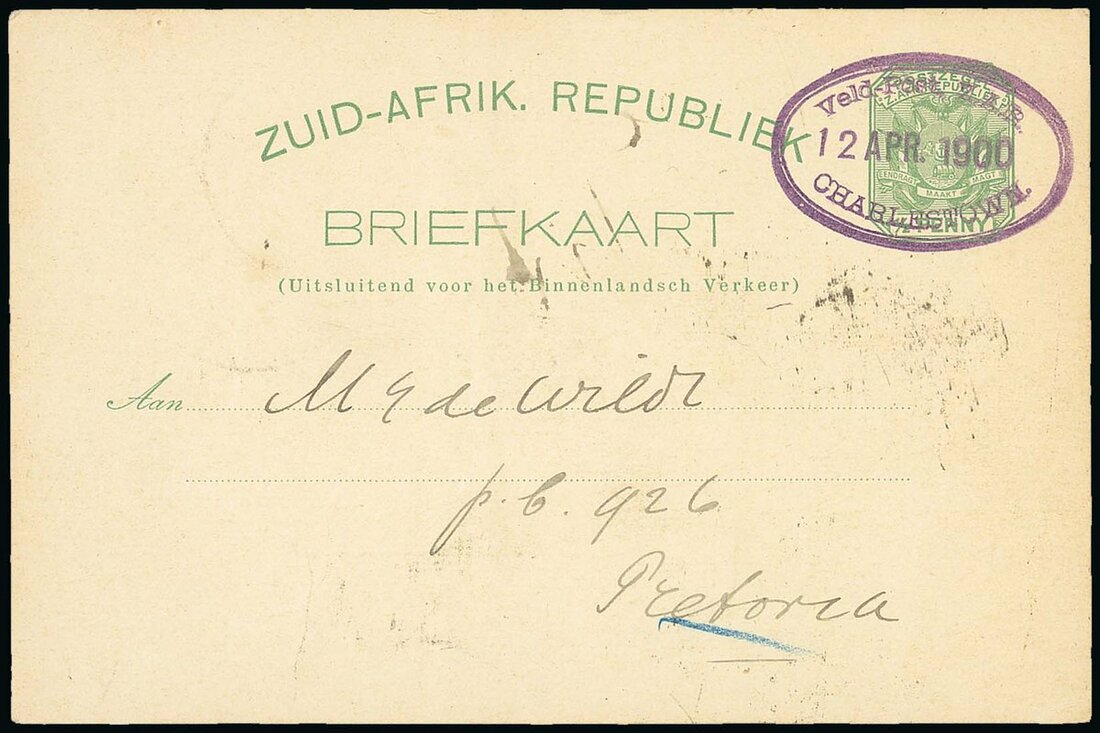 ZUID-AFRIK. REPUBLIEK
POSTZEGEL
Z. AFR. REPUBLIEK
Veld-Post Z.A.R.
12 APR. 1900
EENDRAGT MAAKT MAGT
CHARLESTOWN.
PENNY
BRIEFKAART
(Uitsluitend voor het Binnenlandsch Verkeer)
Aan M G de Wildt
p.b. 926
Pretoria